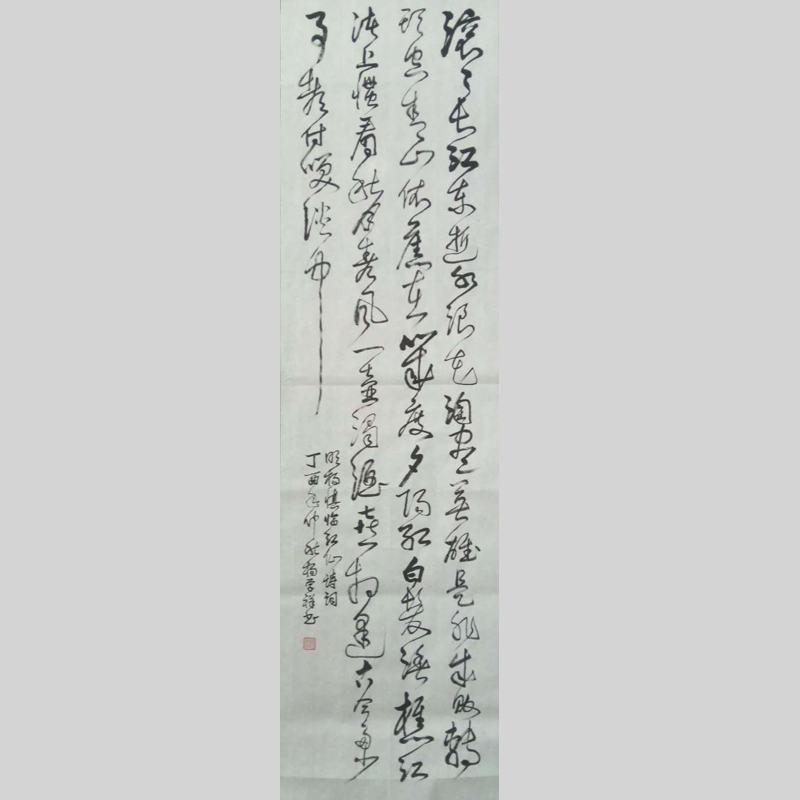 滚滚长江东逝水浪花淘尽英雄是非成败轉
头空青山依舊在几度夕阳红白髮渔樵江
渚上惯看秋月春风一壶浊酒喜相逢古今多少
事都付笑谈中
明杨慎临江仙诗词
丁酉年仲秋杨学祥书